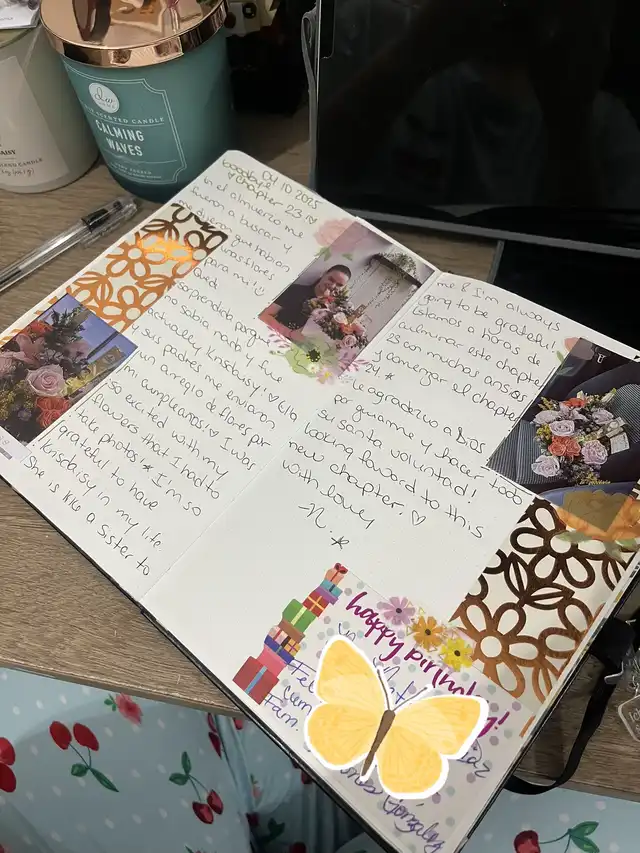 CALMING
WAVES
SCENTED CANDLE
04.10.2025
goodbye!
chapter 23!♡
en el almuerzo me
fueron a buscar y
me dijeron que habian
unas flores
para mi!
Qued
sorprendida porque
no sabia nada y fue
actually krisdaisy! ♡ ella
y sus padres me enviaron
un arreglo de flores por
mi cumpleaños! ♡ I was
so excited with my
flowers that I had to
take photos * I'm so
grateful to have
krisdaisy in my life
She is like a sister to
me & I'm always
going to be grateful
Estamos a horas de
culminar este chapter
23 con muchas ansias
y comenzar el chapter
24 *
le agradezco a Dios
por guiarme y hacer todo
su santa voluntad!
looking foward to this
new chapter. ♡
with love,
-N. *
happy birthday!
Fel
cum
Fam.
González